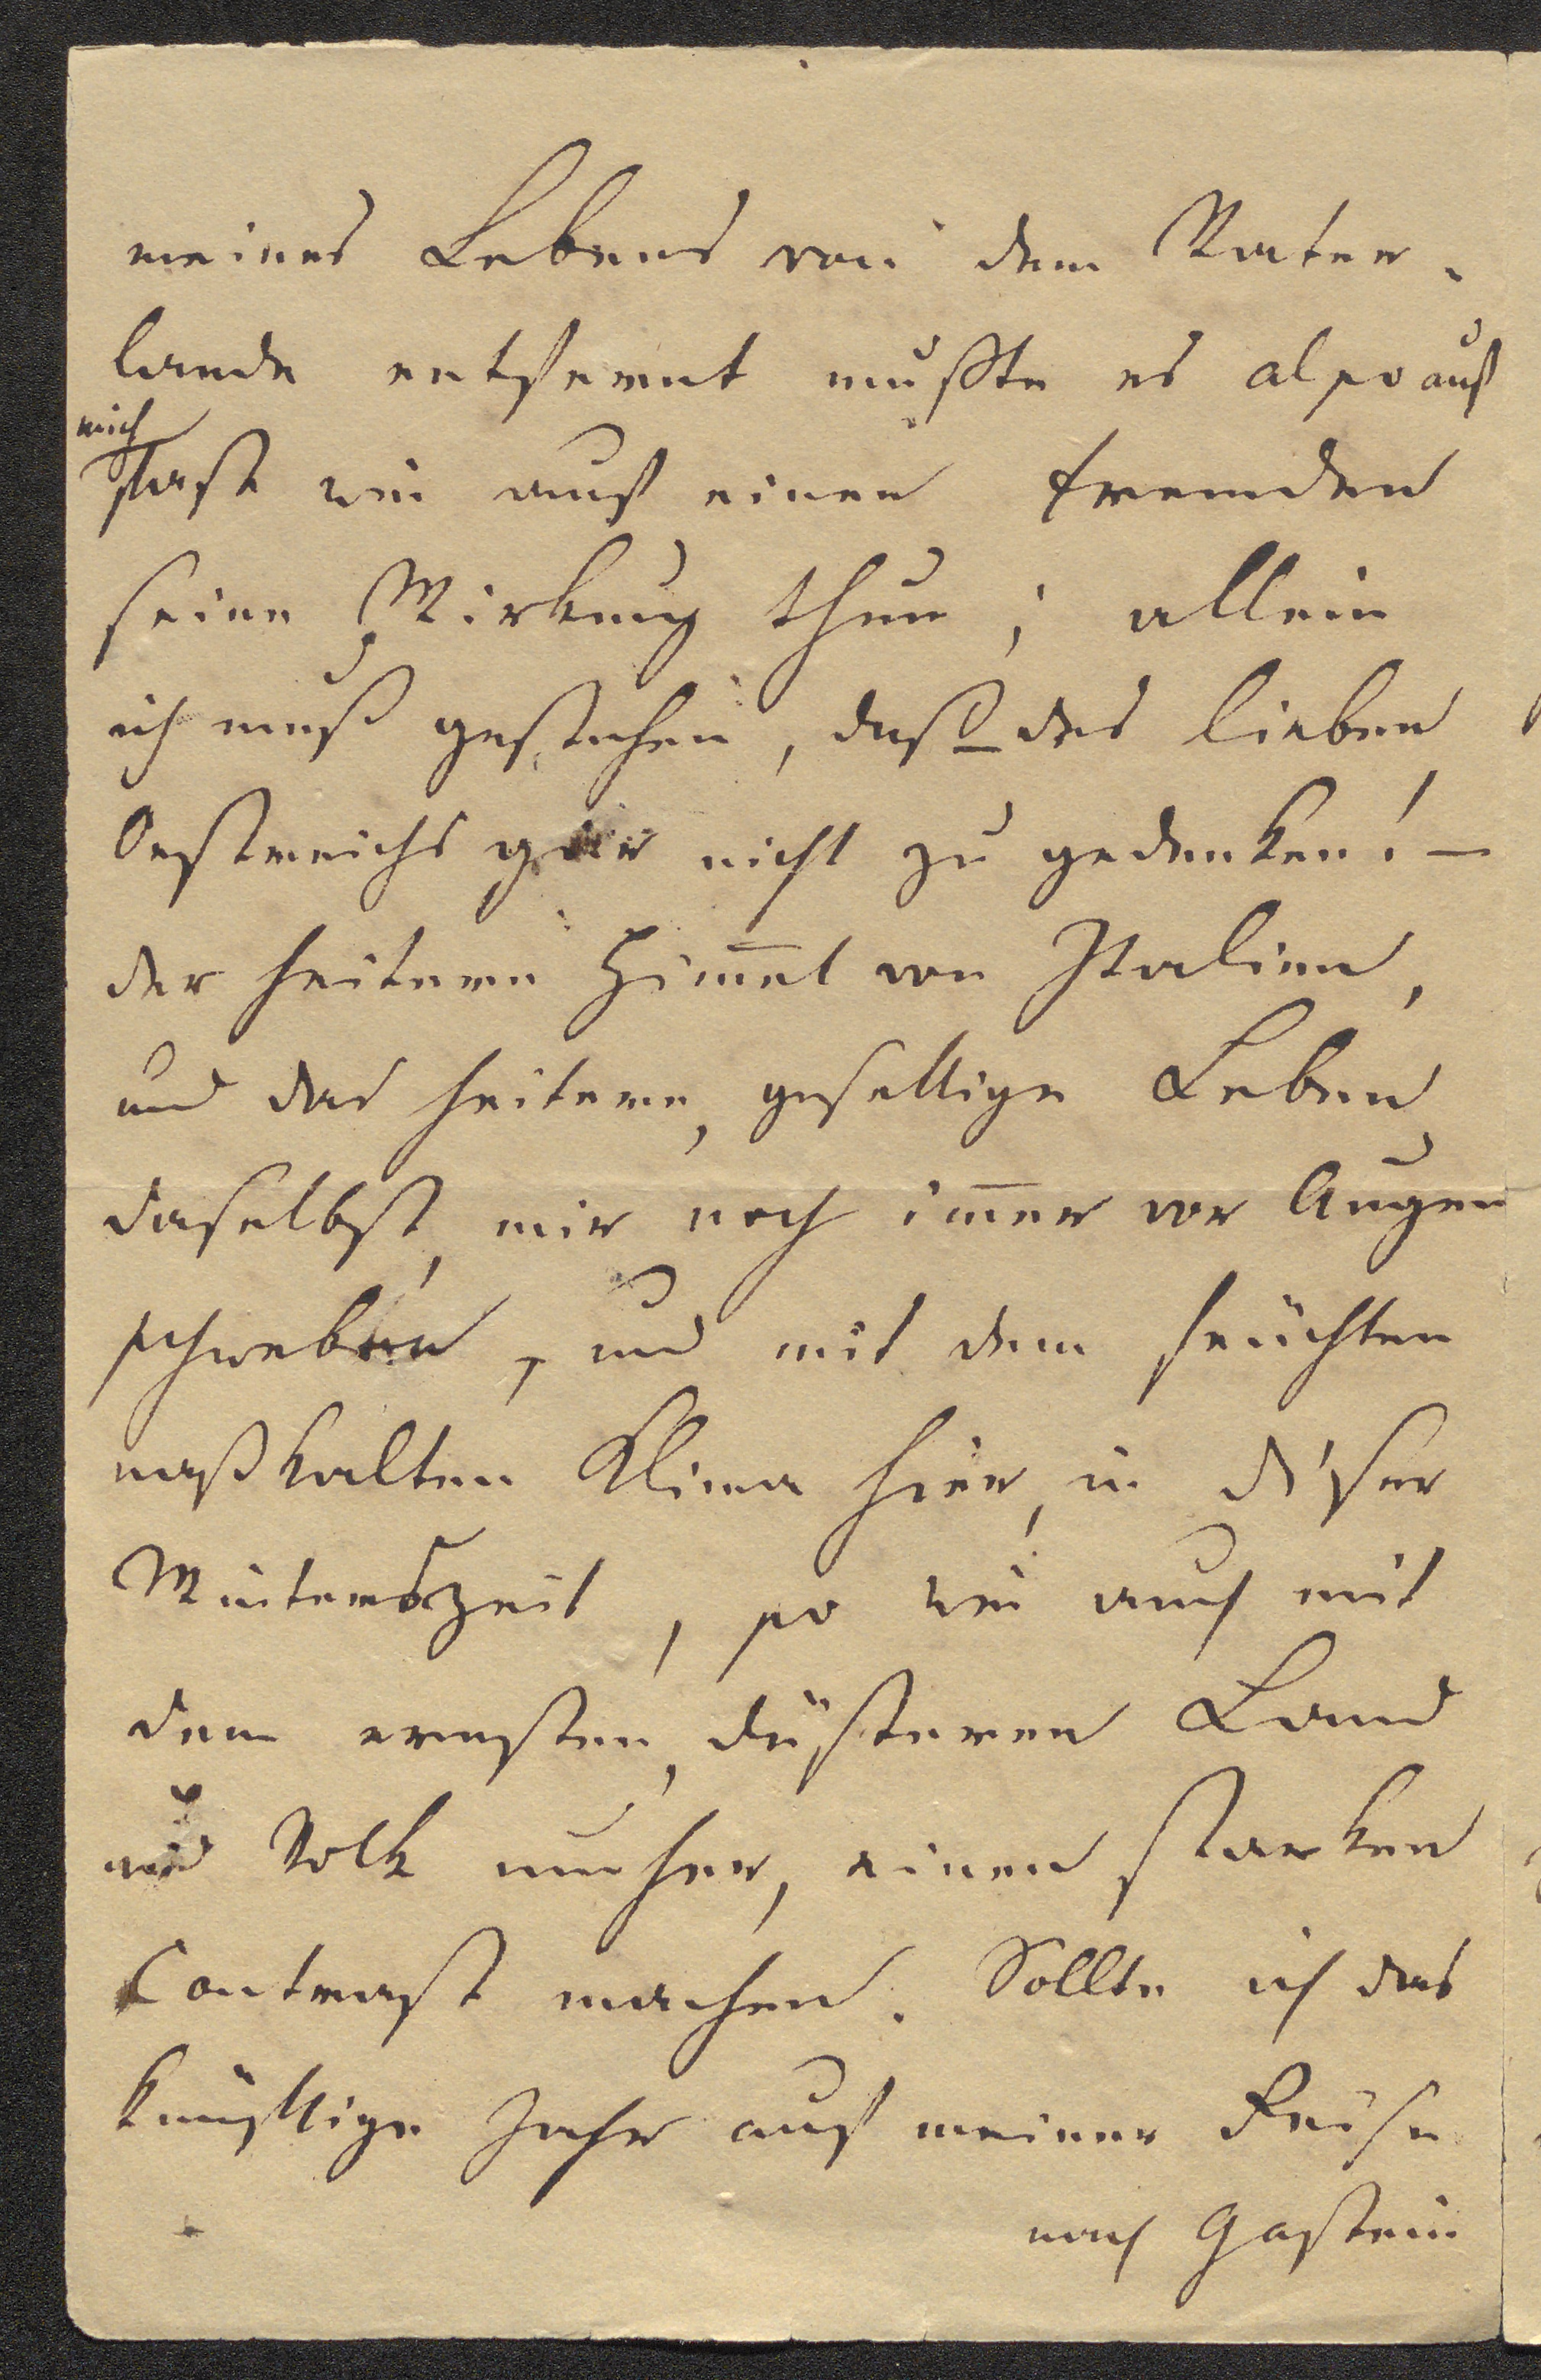 meines Lebens von dem Vater-
lande entfernt mußte es also auf
mich
fast wie auf einen fremden
seine Wirkung thun; allein
ich muß gestehen, daß – des lieben
Oestreichs gar nicht zu gedenken! –
der heitere Him̅el von Italien,
und das heitere, gesellige Leben
daselbst, mir noch im̅er vor Augen
schweben, und mit dem feuchten
naßkalten Klima hier, in dieser
Winterszeit, so wie auch mit
dem ernsten, düsteren Land
und Volk umher, einen starken
Contrast machen. Sollte ich das
künftige Jahr auf meiner Reise
nach Gastein